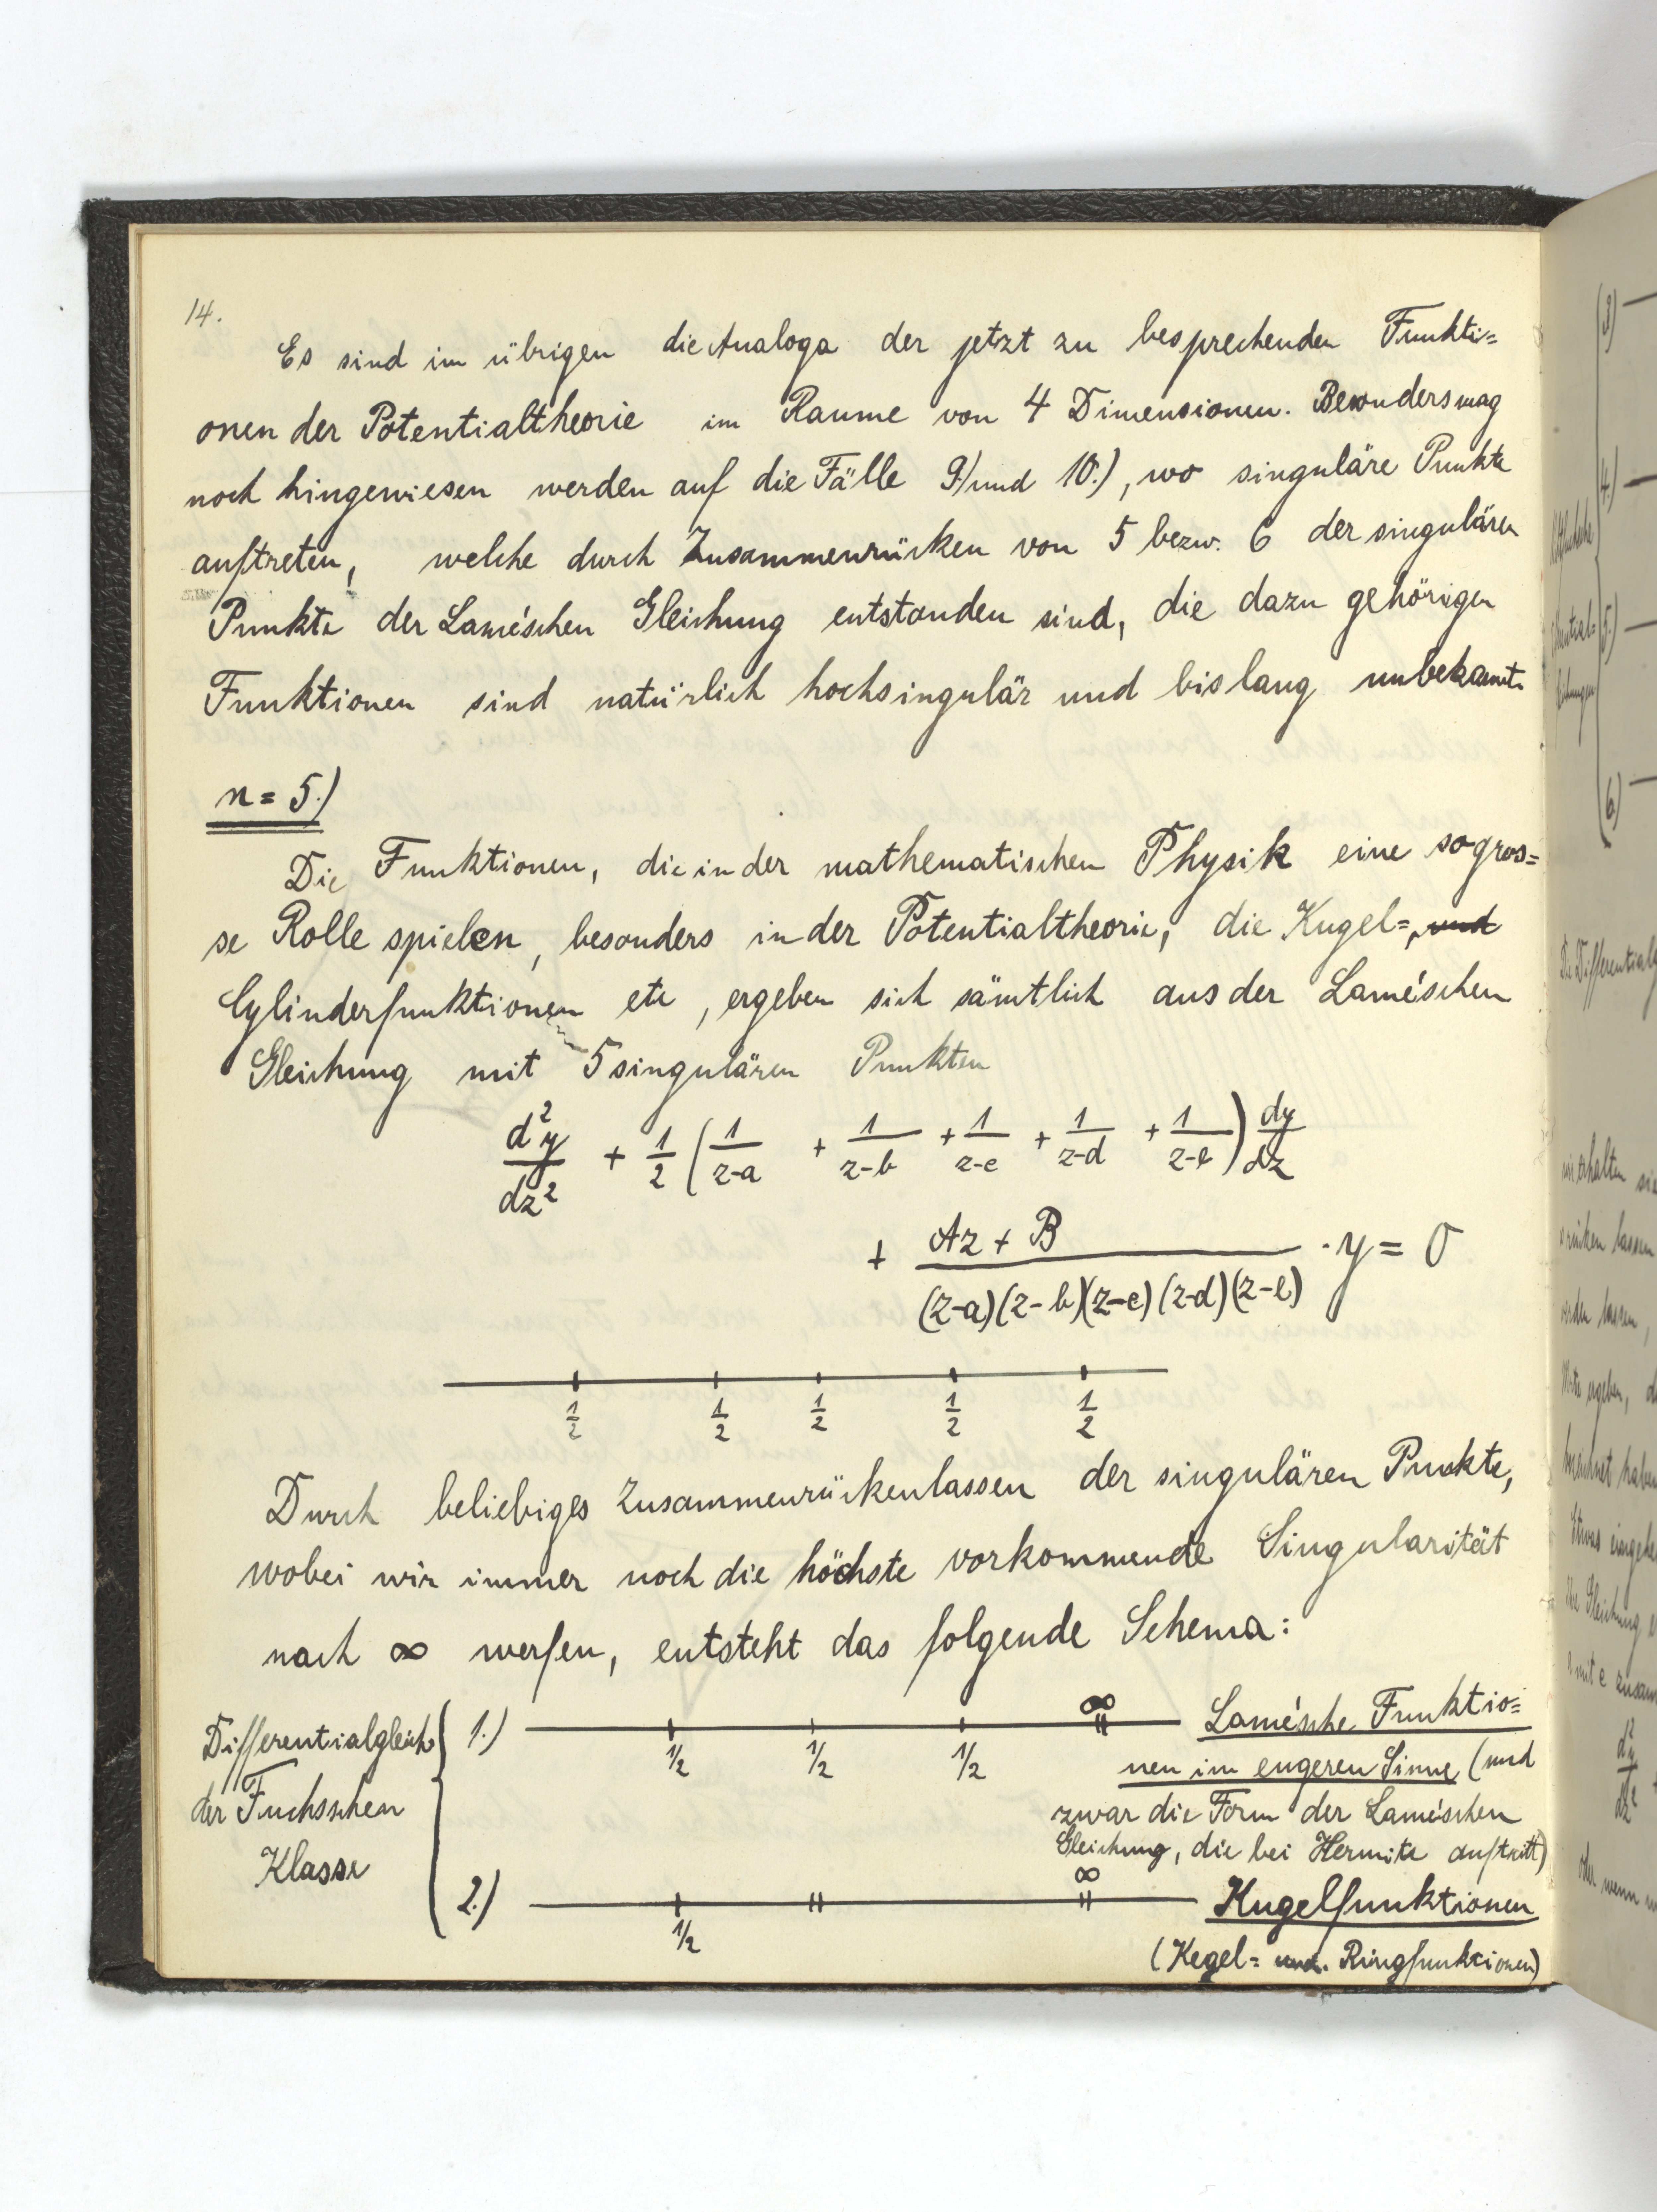 14.
Es sind im übrigen die Analoga der jetzt zu besprechenden Funkti=
onen der Potentialtheorie im Raume von 4 Dimensionen. Besonders mag
noch hingewiesen werden auf die Fälle 9.) und 10.), wo singuläre Punkte
auftreten, welche durch Zusammenrücken von 5 bezw. 6 der singulären
Punkte der Lamé'schen Gleichung entstanden sind, die dazu gehörigen
Funktionen sind natürlich hochsingulär und bislang unbekannt.
n = 5.)
Die Funktionen, die in der mathematischen Physik eine so gros=
se Rolle spielen, besonders in der Potentialtheorie, die Kugel=, und
Cylinderfunktionen etc, ergeben sich sämtlich aus der Lamé'schen
Gleichung mit 5 singulären Punkten
d²y/dz² + 1/2 (1/z-a + 1/z-b + 1/z-c + 1/z-d + 1/z-e) dy/dz
+ Az + B / (z-a)(z-b)(z-c)(z-d)(z-e) · y = 0
1/2 1/2 1/2 1/2 1/2
Durch beliebiges Zusammenrückenlassen der singulären Punkte,
wobei wir immer noch die höchste vorkommende Singularität
nach ∞ werfen, entsteht das folgende Schema:
Differentialgleich.
der Fuchsschen
Klasse
1.) 1/2 1/2 1/2 ∞ Lamé'sche Funktio=
nen im engeren Sinne (und
zwar die Form der Lamé'schen
Gleichung, die bei Hermite auftritt)
2.) 1/2 ∞ Kugelfunktionen
(Kegel= und Ringfunktionen)
3.)
4.)
5.)
6.)